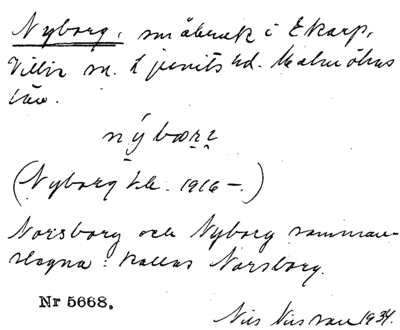 Nyborg, småbruk i Ekarp,
Villie sn. Ljunits hd. Malmöhus
län.
(Nyborg kb. 1916–.)
Norsborg och Nyborg samman-
slagna: kallas Norsborg.
Nr 5668.
Nils Nilsson 1934.